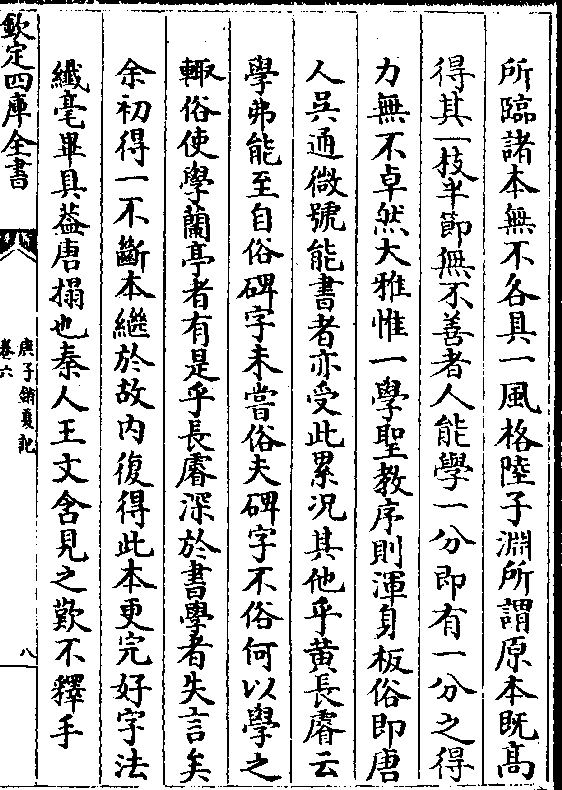 所臨諸本無不各具一風格陸子淵所謂原本既髙
得其一枝半節無不善者人能學一分即有一分之得
力無不卓然大雅惟一學聖教序則渾身板俗即唐
人吳通微號能書者亦受此累况其他乎黄長睿云
學弗能至自俗碑字未嘗俗夫碑字不俗何以學之
輙俗使學蘭亭者有是乎長睿深於書學者失言矣
余初得一不斷本繼於故内復得此本更完好字法
纖毫畢具葢唐搨也秦人王文含見之歎不釋手
欽定四庫全書
庚子銷夏記
卷六
八